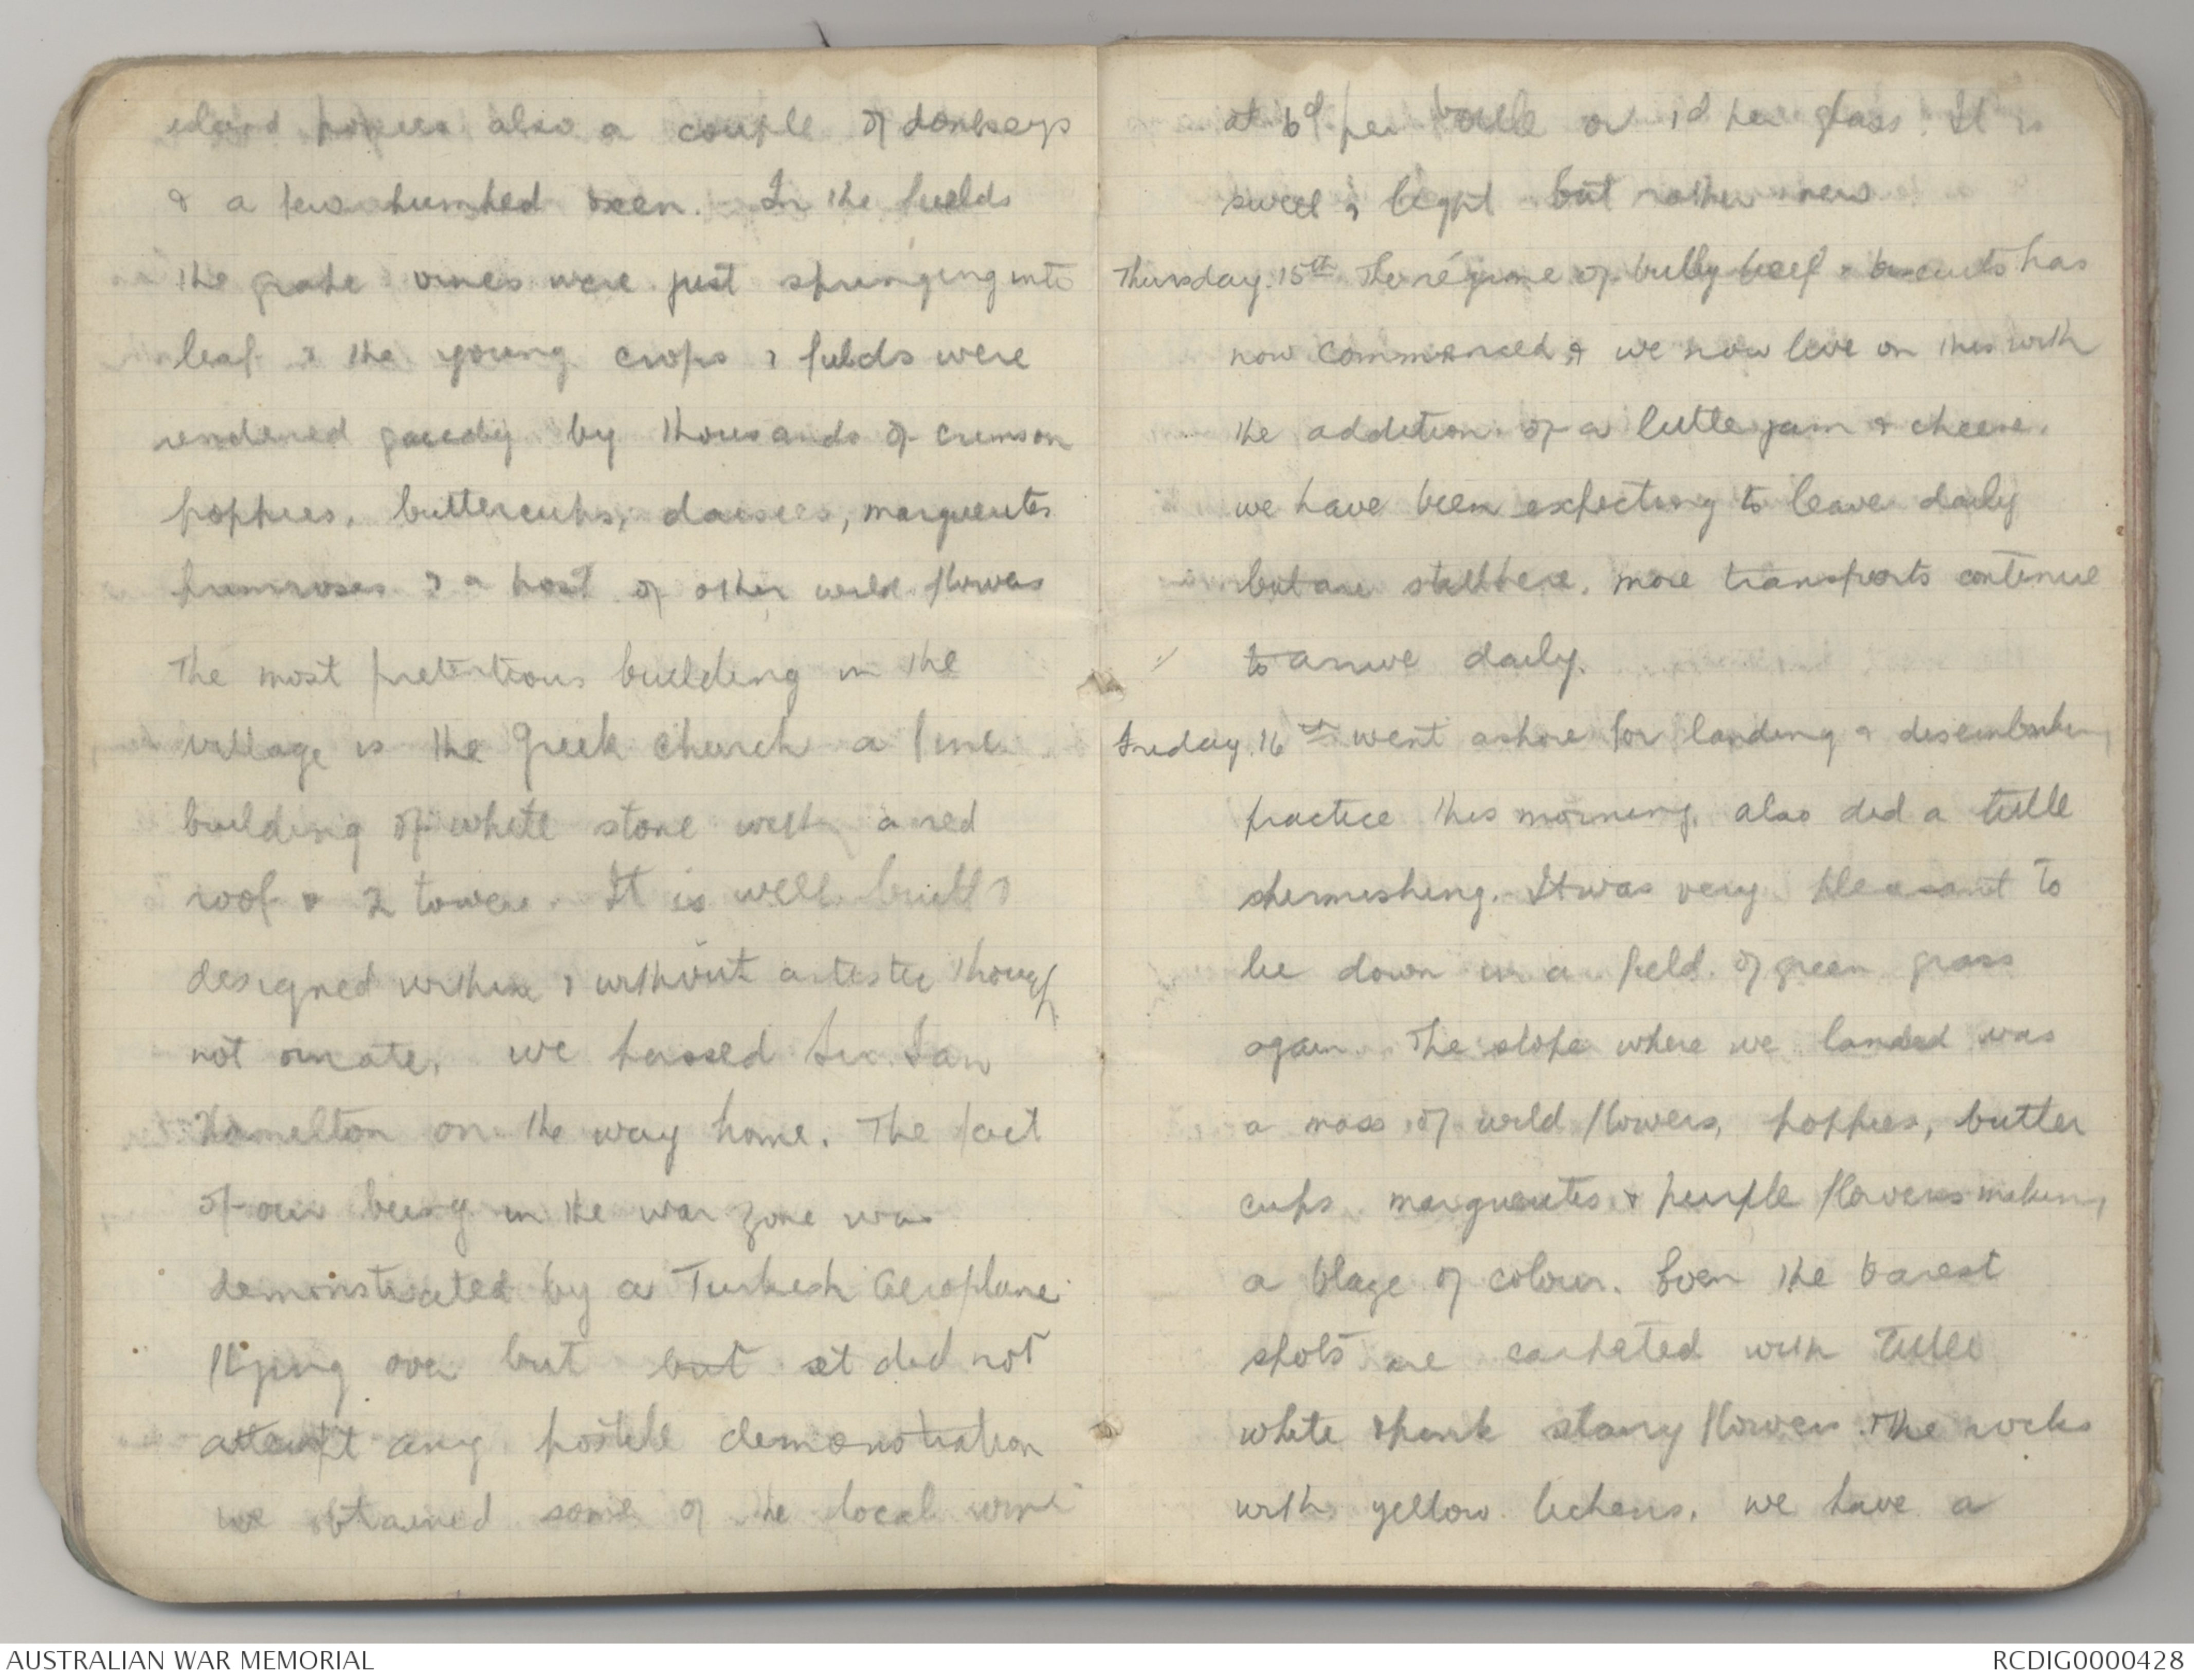 island ponies also a couple of donkeys
& a few humped oxen. In the fields
the grape vines were just springing into
leaf & the young crops & fields were
rendered gaudy by thousands of crimson
poppies, buttercups, daisies, marguerites
primroses & a host of other wild flowers
The most pretentious building in the
village is the Greek church a fine
building of white stone with a red
roof & 2 towers. It is well built &
designed within & without artistic though
not ornate. We passed Sir Ian
Hamilton on the way home. The fact
of our being in the war zone was
demonstrated by a Turkish Aeroplane
flying over but but it did not
attempt any hostile demonstration
we obtained some of the local wine
at 6d per bottle or 1d per glass. It is
sweet & light but rather new
Thursday. 15th The régime of bully beef & biscuits has
now commenced & we now live on this with
the addition of a little jam & cheese.
we have been expecting to leave daily
but are still here. more transports continue
to arrive daily.
Friday. 16th went ashore for landing & disembarking
practice this morning, also did a little
skirmishing. It was very pleasant to
lie down in a field of green grass
again. The slope where we landed was
a mass of wild flowers, poppies, butter
cups marguerites & purple flowers making
a blaze of colour. Even the barest
spots are carpeted with little
white & pink starry flowers. & the rocks
with yellow lichens. we have a
AUSTRALIAN WAR MEMORIAL
RCDIG0000428